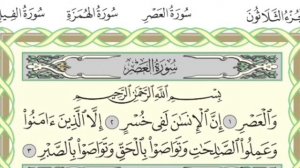 الجُزْءُ الثَّلَاثُونَ سُورَةُ العَصْرِ سُورَةُ الهُمَزَةِ سُورَةُ
سُورَةُ الْعَصْرِ
بِسْمِ اللَّهِ الرَّحْمَٰنِ الرَّحِيمِ
وَالْعَصْرِ ١ إِنَّ الْإِنسَانَ لَفِي خُسْرٍ ٢ إِلَّا الَّذِينَ آمَنُوا
وَعَمِلُوا الصَّالِحَاتِ وَتَوَاصَوْا بِالْحَقِّ وَتَوَاصَوْا بِالصَّبْرِ ٣